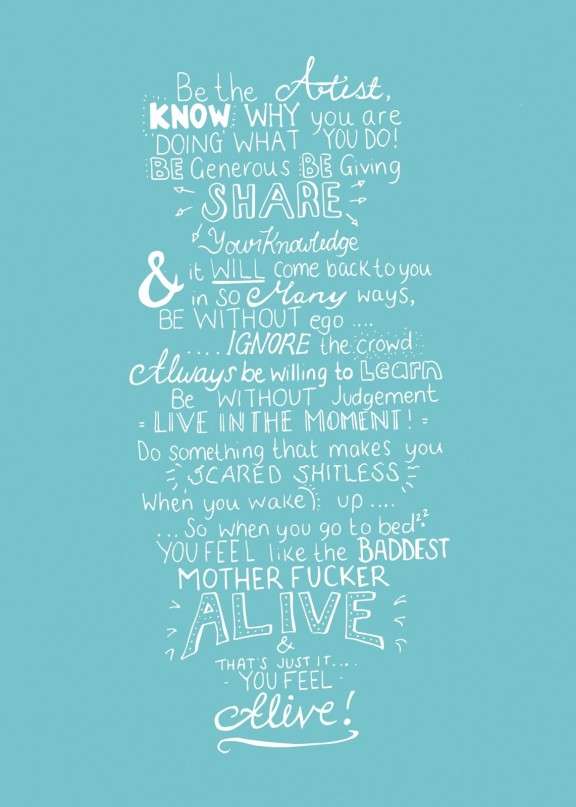 ... Be the Artist,
KNOW WHY you are
DOING WHAT YOU DO!
BE Generous BE Giving
SHARE
Your Knowledge
& it WILL come back to you
in so Many ways,
BE WITHOUT ego ....
.... IGNORE the crowd
Always be willing to Learn
Be WITHOUT Judgement
= LIVE IN THE MOMENT! =
Do something that makes you
SCARED SHITLESS
When you wake up ....
... So when you go to bed zz
YOU FEEL like the BADDEST
MOTHER FUCKER
ALIVE
&
THAT'S JUST IT....
- YOU FEEL -
Alive!